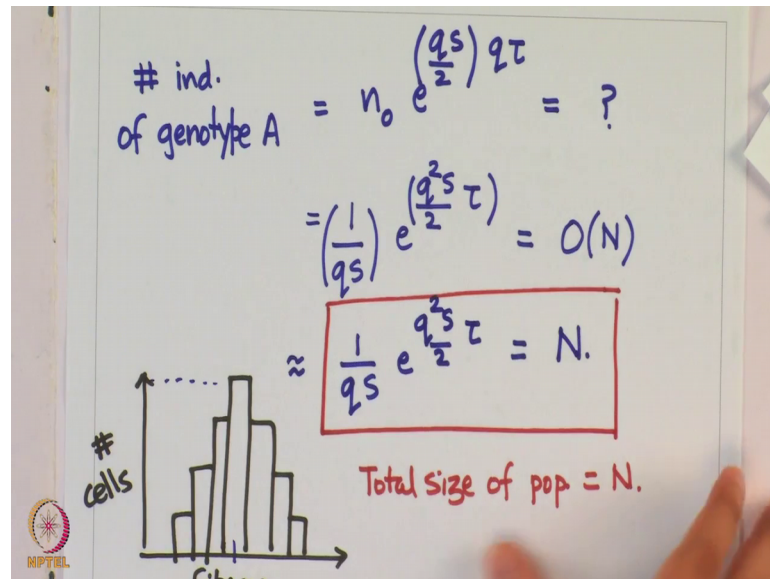 # ind.
of genotype A = n₀ e^((qs/2) qτ) = ?
= (1/qs) e^((q²s/2) τ) = O(N)
≈ 1/qs e^(q²s/2 τ) = N.
#
cells
Total size of pop = N.
NPTEL